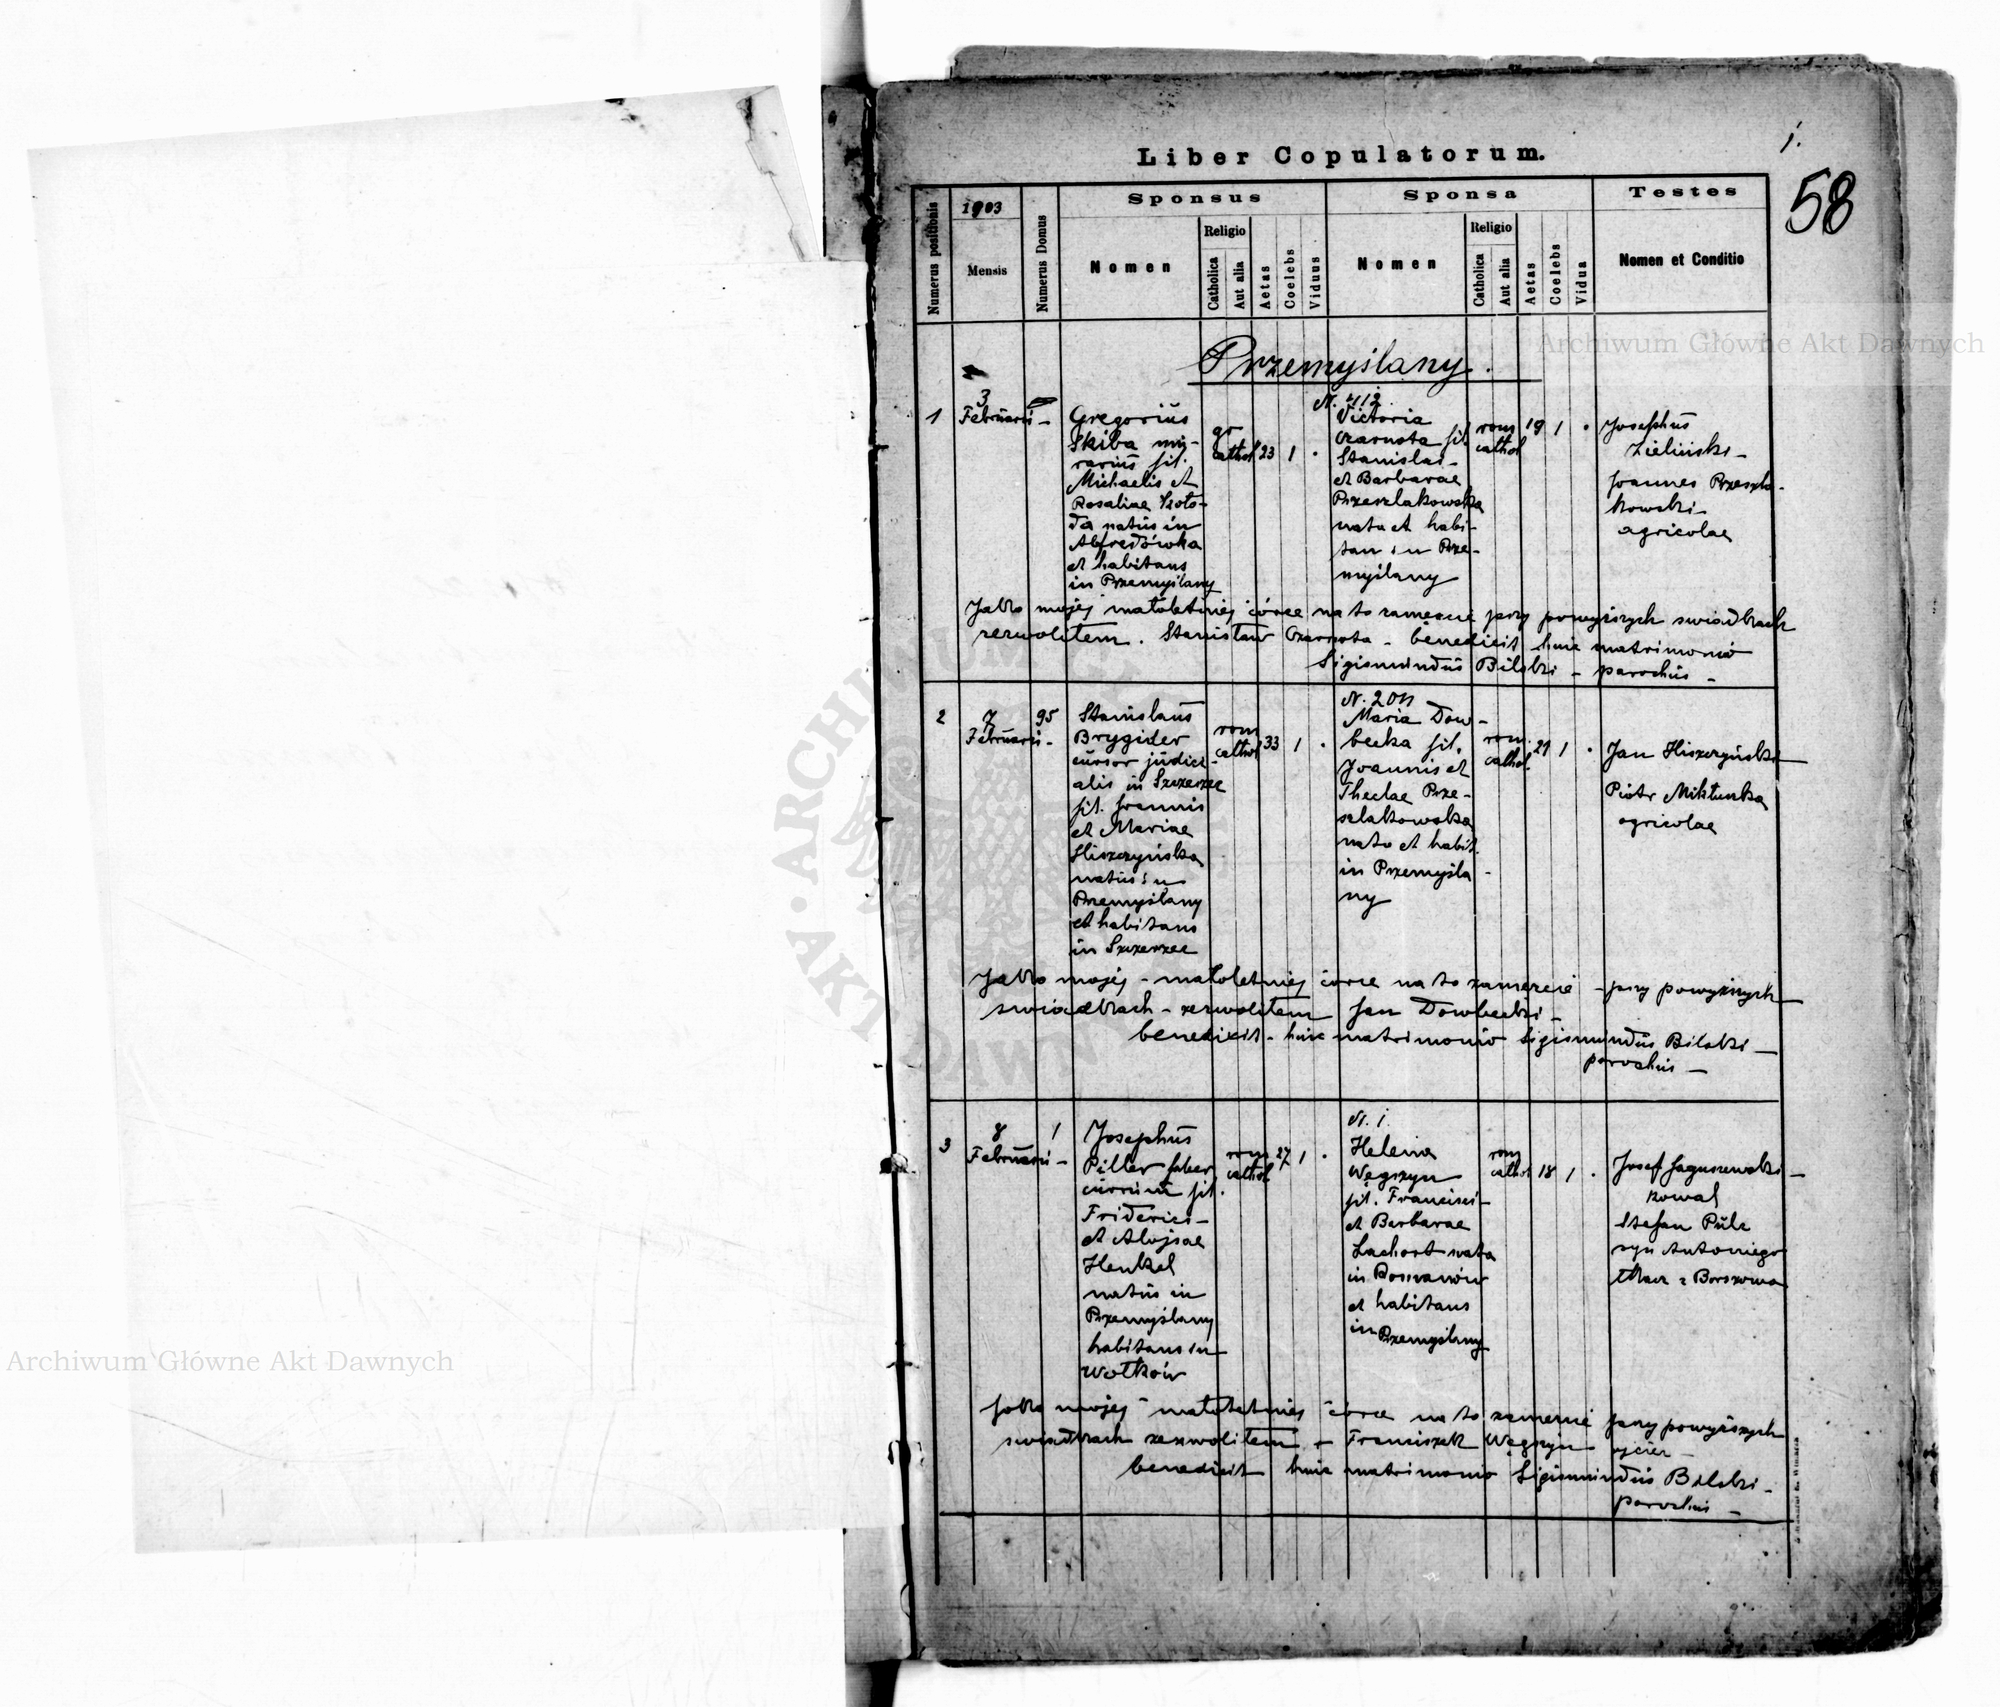 Liber Copulatorum.
1.
58
Numerus positionis
1903
Mensis
Numerus Domus
Sponsus
Nomen
Religio
Catholica
Aut alia
Aetas
Coelebs
Viduus
Sponsa
Nomen
Religio
Catholica
Aut alia
Aetas
Coelebs
Vidua
Testes
Nomen et Conditio
Przemyślany.
1
3
Februarii
Gregoriŭs
Skiba mŭ-
rariŭs fil.
Michaelis et
Rosaliae
natŭs in
Alfredówka
et habitans
in Przemyślany
gr
cathol
23
1
N. 412.
Victoria
Czarnota fil.
Stanislai
et Barbarae
Przeszlakowska
nata et habi-
tan in Prze-
myślany
rom
cathol
19
1
Josephŭs
Zieliński
Joannes Przeszla-
kowski
agricolae
Jako mojej małoletniej córce na to zamęście przy powyższych świadkach
zezwoliłem. Stanisław Czarnota - benedixit huic matrimonio
Sigismundŭs Bilski - parochŭs -
2
7
Februarii
95
Stanislaŭs
Brygider
cŭrsor jŭdici-
alis in Szczerzec
fil. Joannis
et Mariae
Hiszczyńska
natŭs in
Przemyślany
et habitans
in Szczerzec
rom
cathol
33
1
Maria Dow-
becka fil.
Joannis et
Theclae Prze-
szlakowska
nata et habit.
in Przemyśla-
ny
rom.
cathol.
21
1
Jan Hiszczyński
Piotr
agricolae
Jako mojej małoletniej córce na to zamęście przy powyższych
świadkach zezwoliłem Jan Dowbecki
benedixit huic matrimonio Sigismundŭs Bilski
parochŭs
3
8
Februarii
1
Josephŭs
Piller faber
cŭrrŭm fil.
Friderici
et Alojsae
Henkel
natŭs in
Przemyślany
habitans in
Wołków
rom
cathol
27
1
N. 1.
Helena
Węgrzyn
fil. Francisci
et Barbarae
Lachort nata
in
et habitans
in Przemyślany
rom
cathol
18
1
Josef Jaguszewski
kowal
Stefan
syn Antoniego
tkacz z Borszowa
Jako mojej małoletniej córce na to zamęście przy powyższych
świadkach zezwoliłem Franciszek Węgrzyn ojciec
benedixit huic matrimonio Sigismundŭs Bilski
parochŭs
Archiwum Główne Akt Dawnych
Archiwum Główne Akt Dawnych